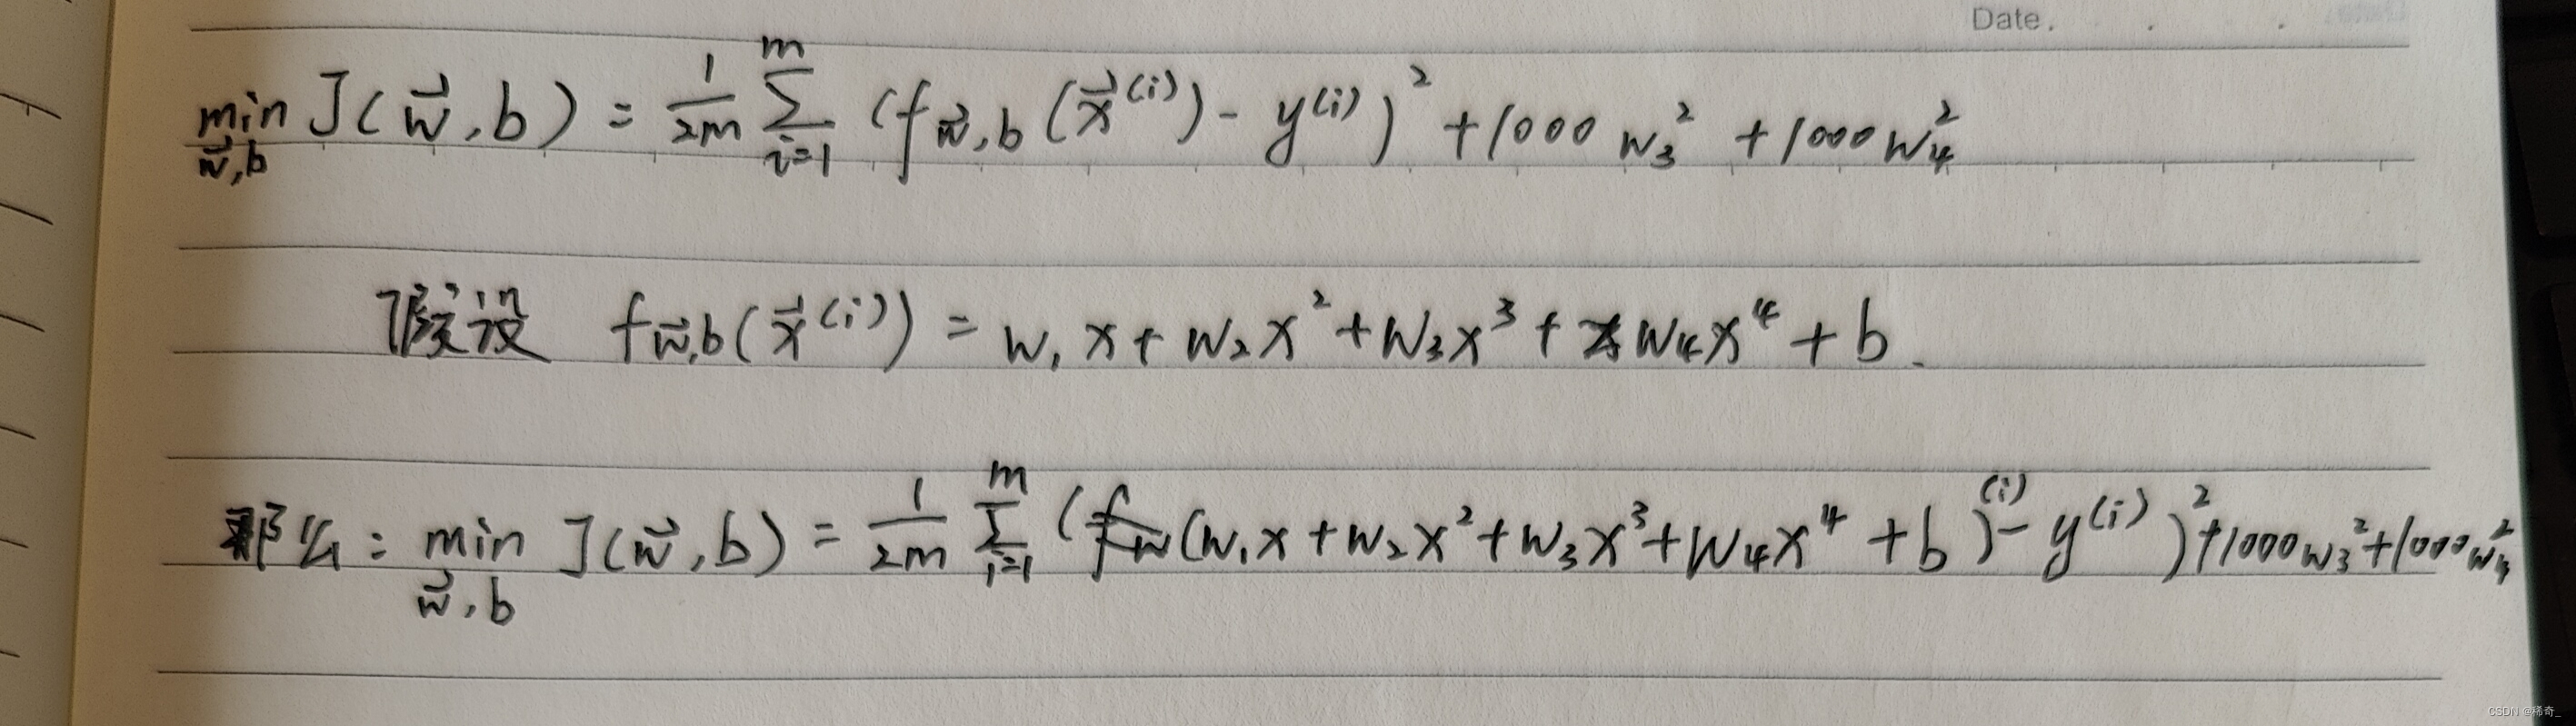 Date.
min J(w⃗,b) = 1/2m Σ_{i=1}^{m} (f_{w⃗,b}(x⃗^{(i)}) - y^{(i)})² + 1000w₃² + 1000w₄²
w⃗,b
假设 f_{w⃗,b}(x⃗^{(i)}) = w₁x + w₂x² + w₃x³ + w₄x⁴ + b.
那么: min J(w⃗,b) = 1/2m Σ_{i=1}^{m} ((w₁x + w₂x² + w₃x³ + w₄x⁴ + b)^{(i)} - y^{(i)})² + 1000w₃² + 1000w₄²
w⃗,b
CSDN @稀奇_